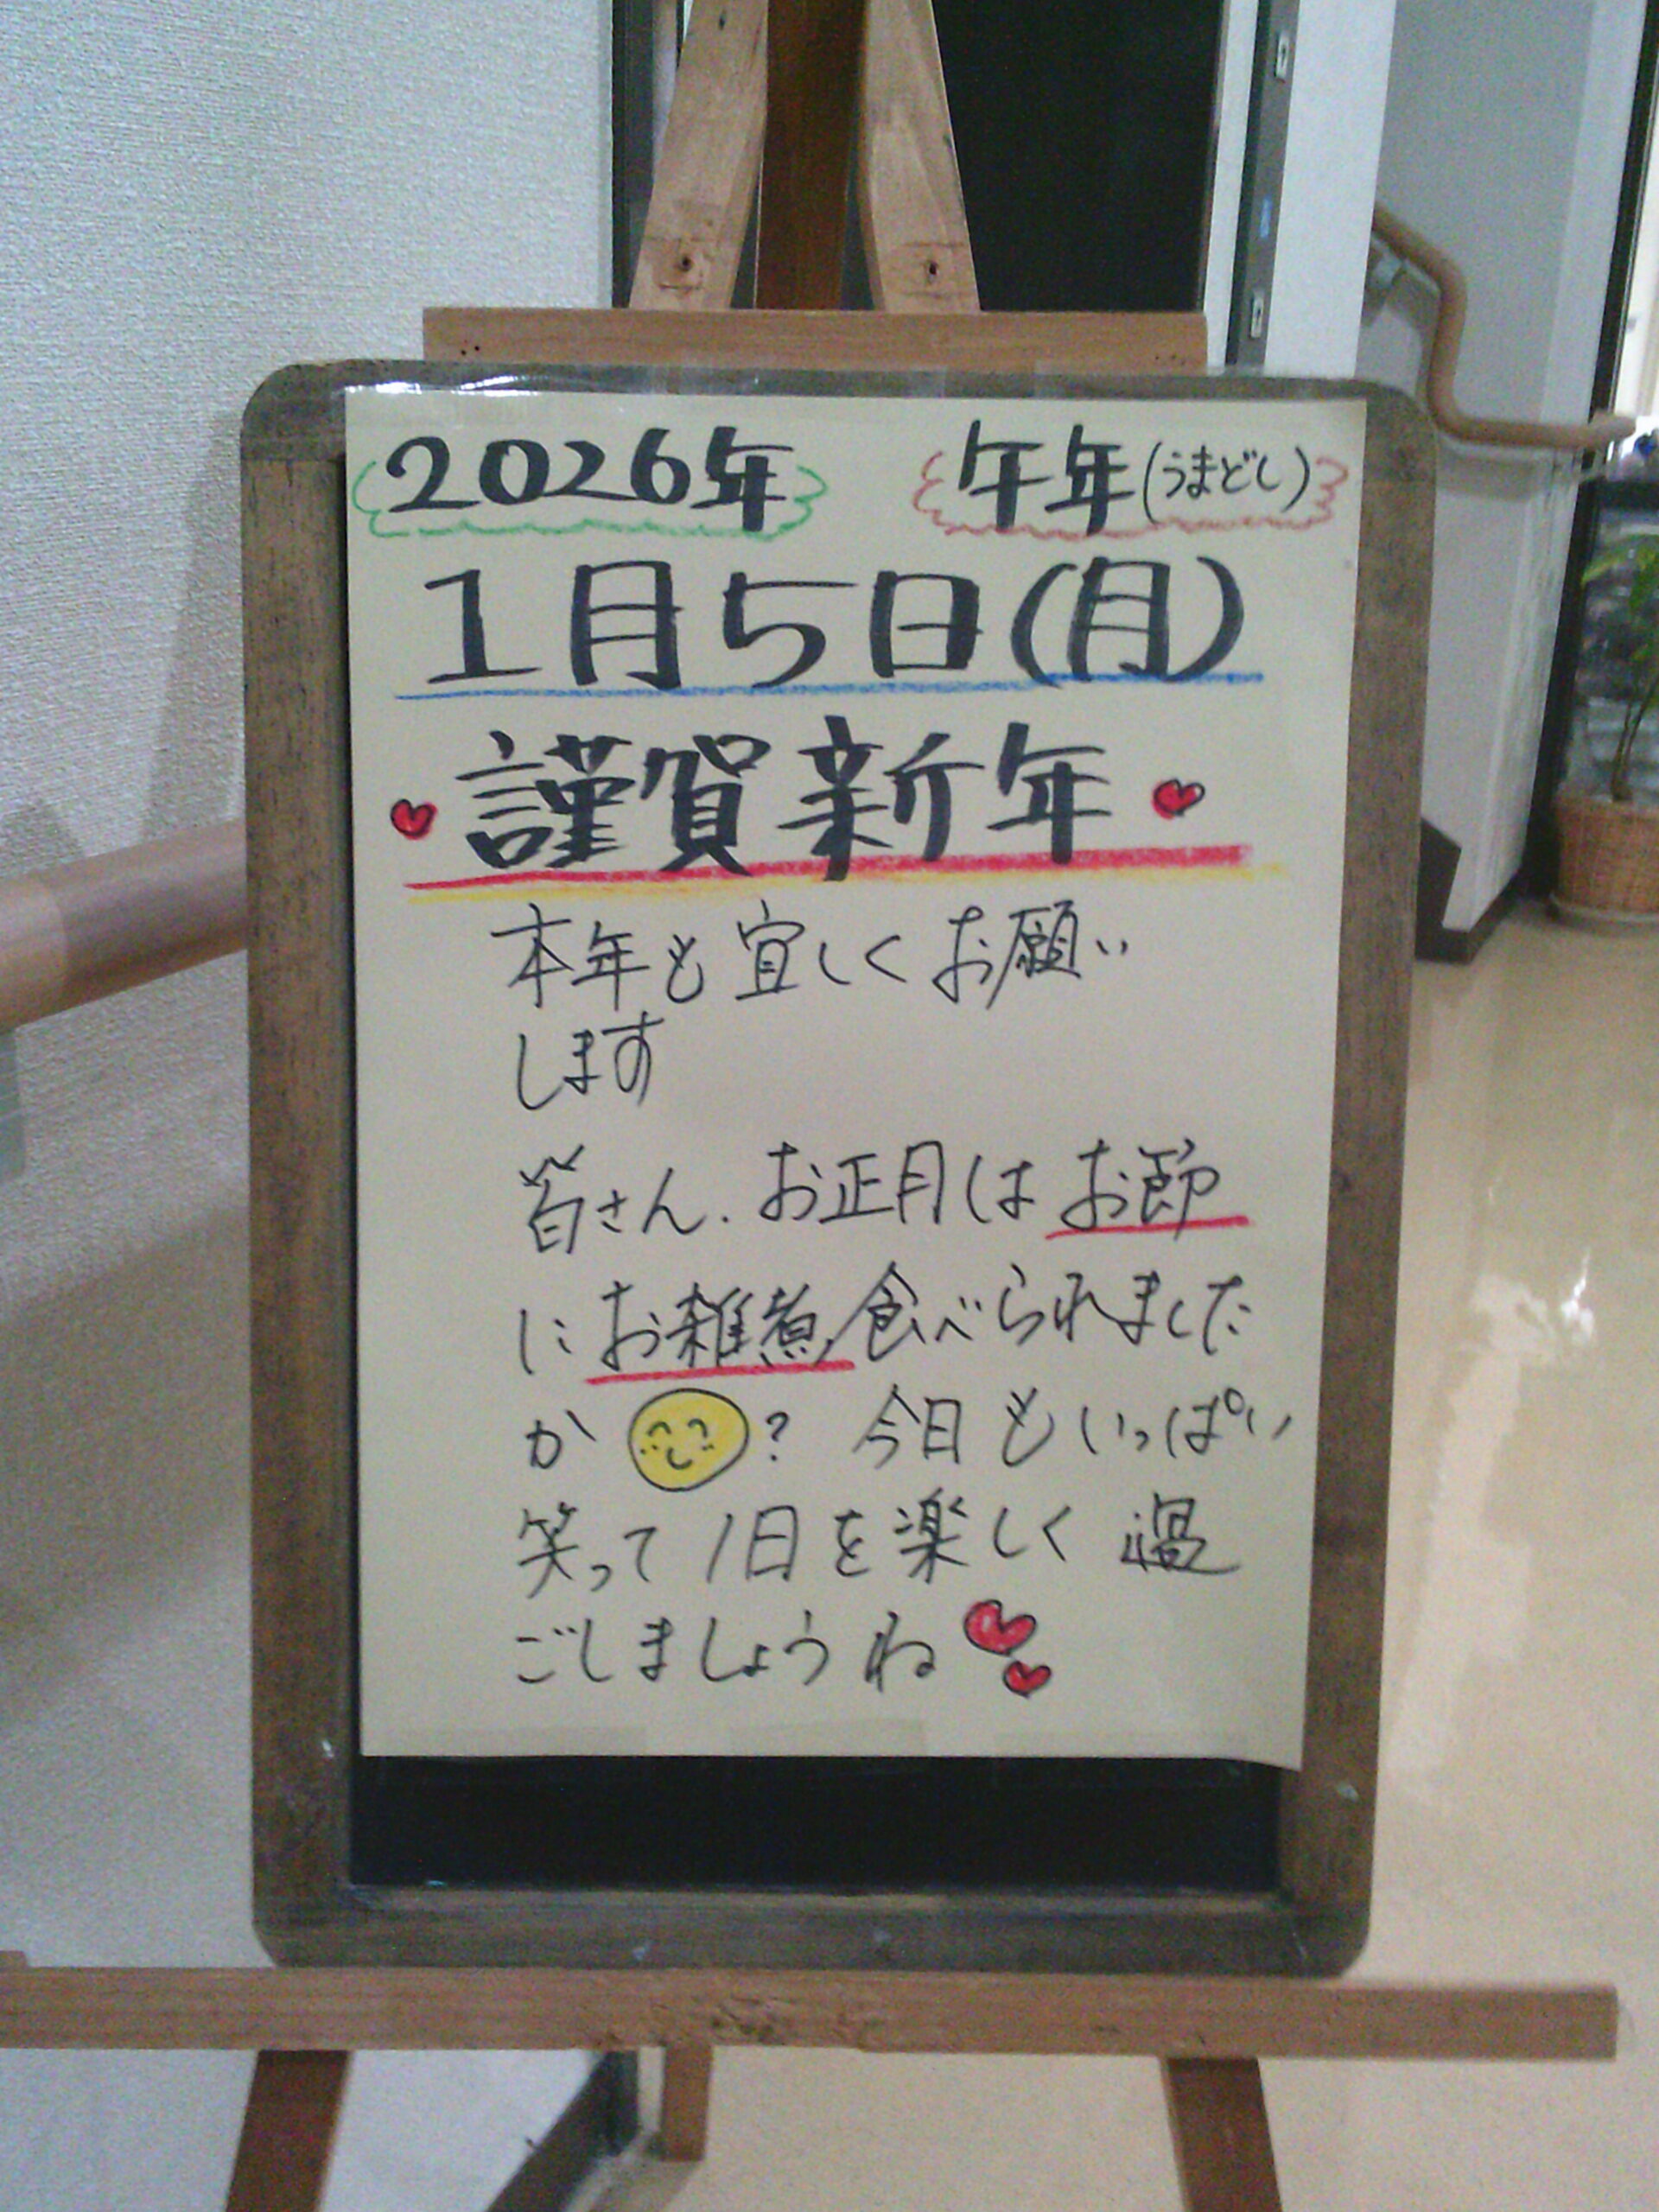 2026年 午年(うまどし)
1月5日(月)
謹賀新年
本年も宜しくお願い
します
皆さん、お正月はお節
にお雑煮食べられました
か？ 今日もいっぱい
笑って1日を楽しく過
ごしましょうね